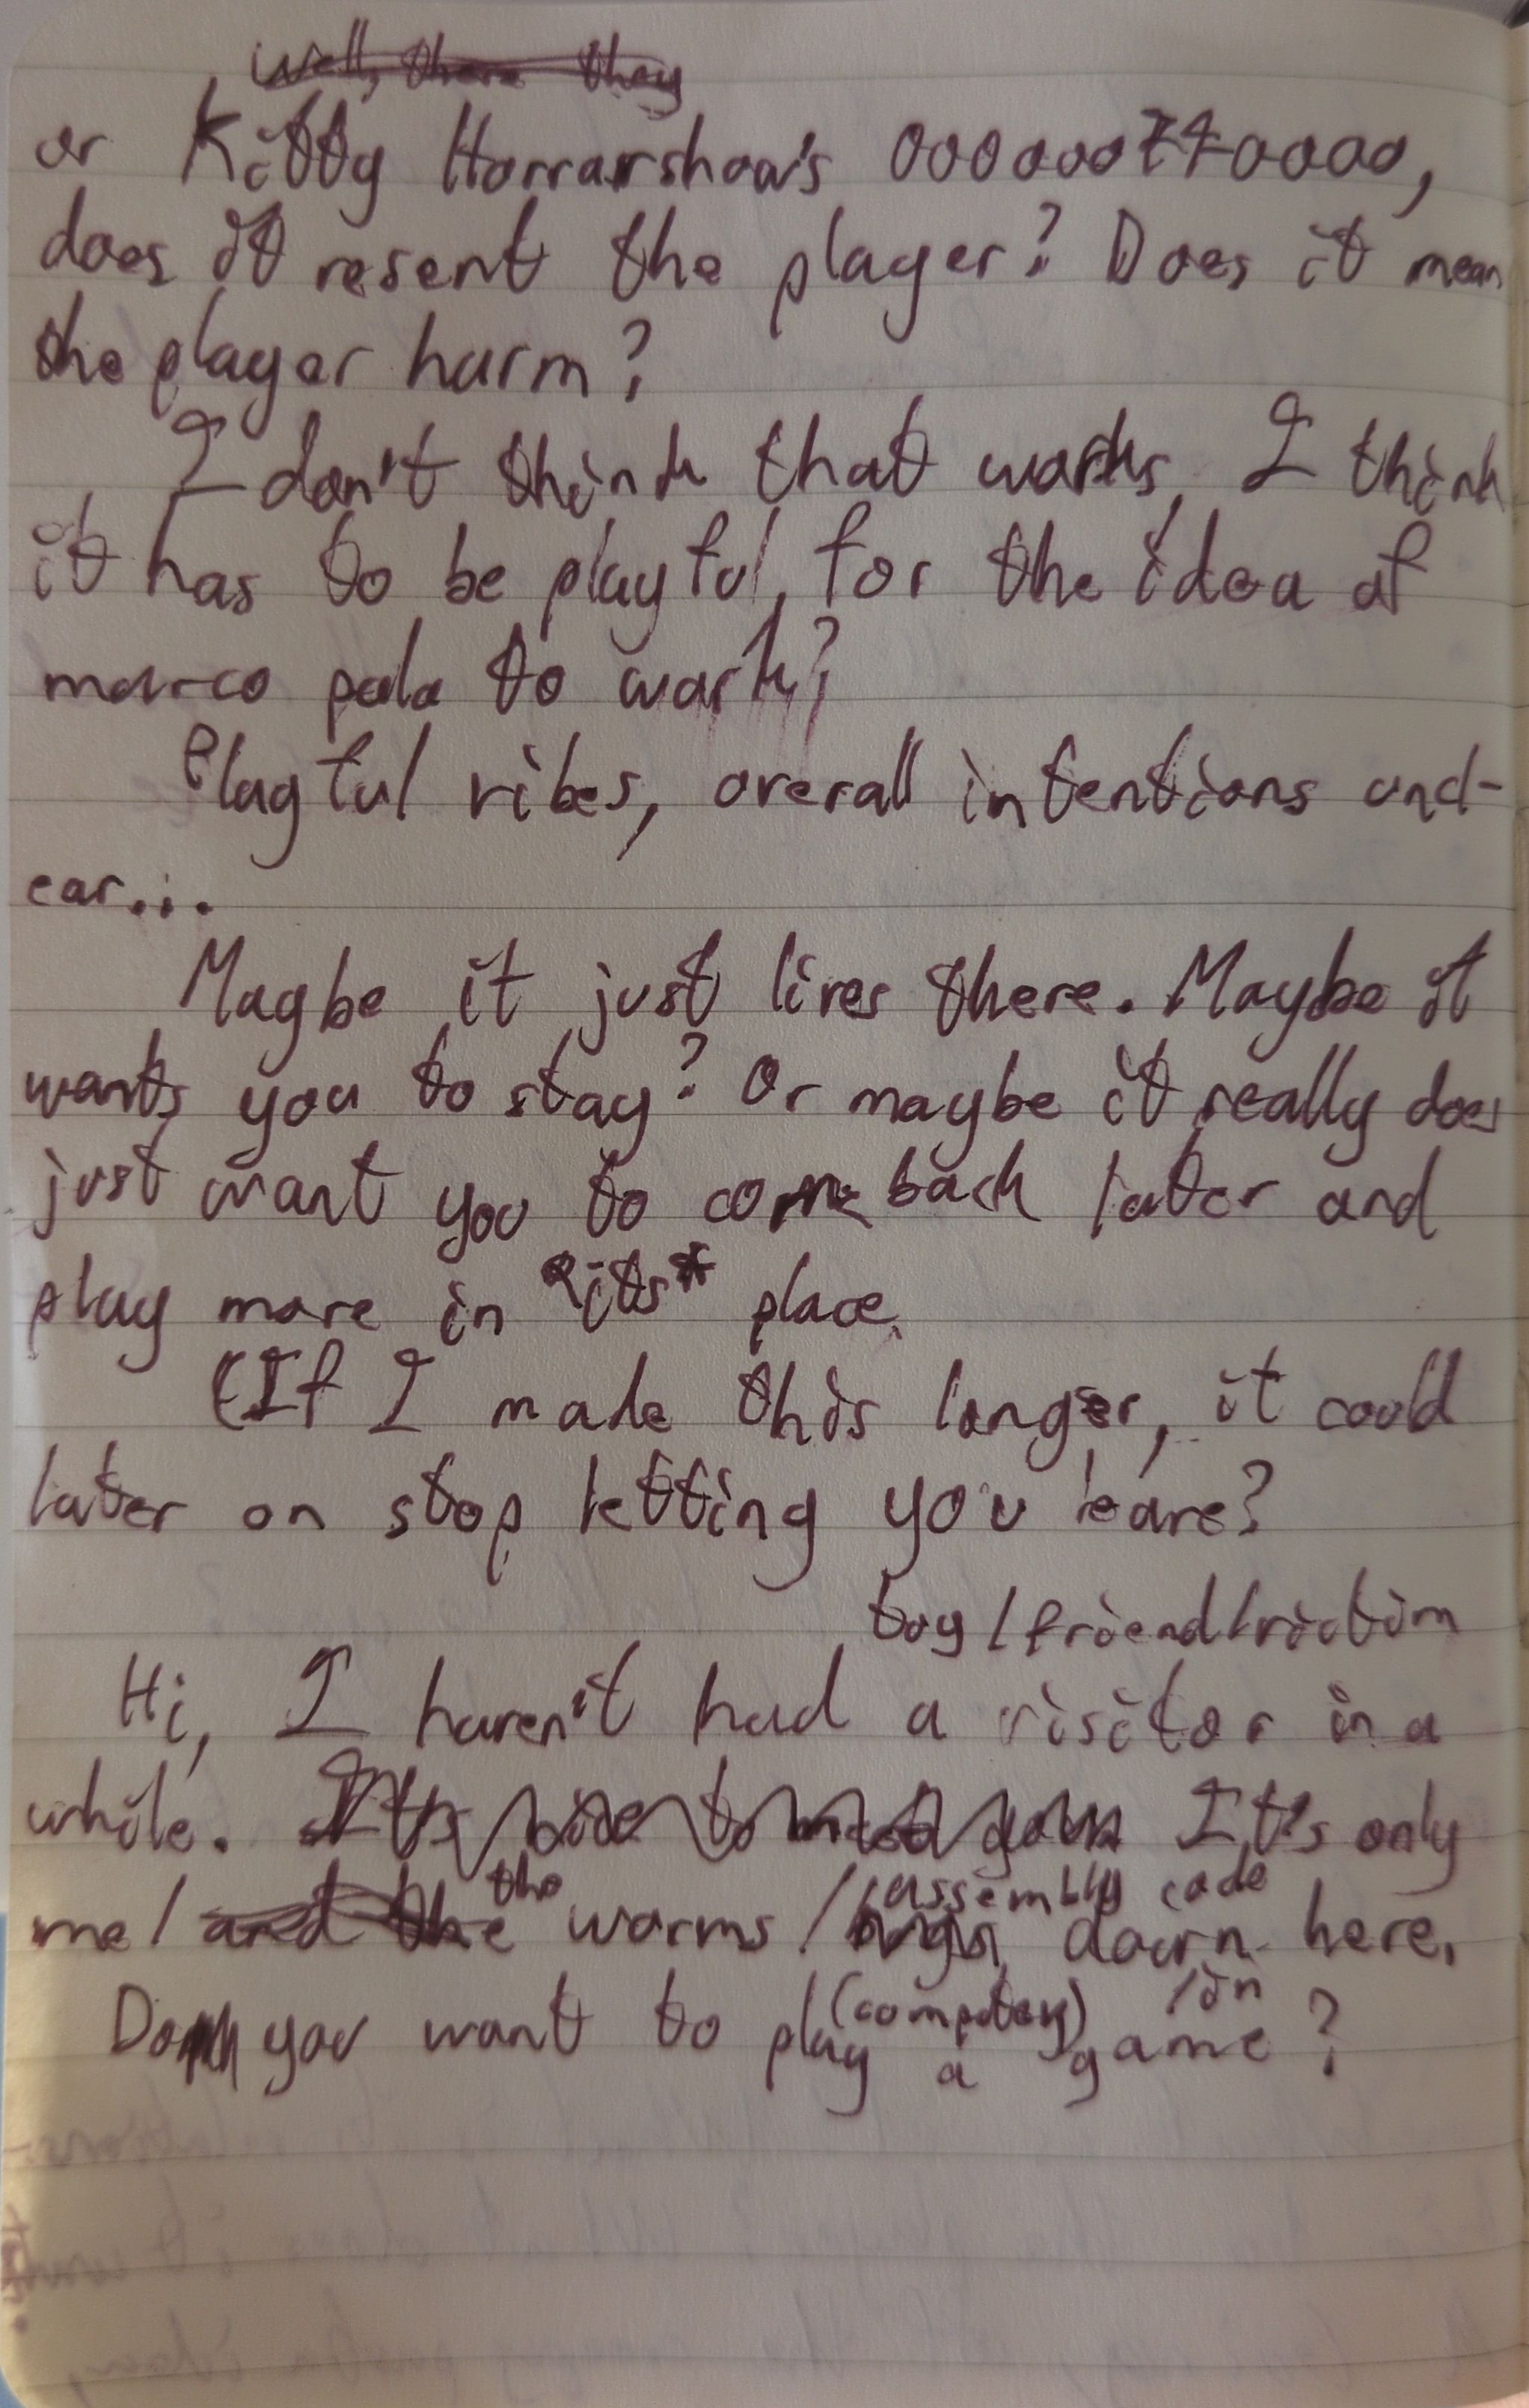 Well, there they
or Kitty Horrorshow's 000000FF0000,
does it resent the player? Does it mean
the player harm?
I don't think that works, I think
it has to be playful, for the idea of
marco polo to work?
Playful vibes, overall intentions uncl-
ear...
Maybe it just lives there. Maybe it
wants you to stay? Or maybe it really does
just want you to come back later and
play more in *its* place.
(If I made this longer, it could
later on stop letting you leave?
toy/friend/victim
Hi, I haven't had a visitor in a
while. It's nice to meet you It's only
the assembly code
me/ and the worms / bugs down here.
(computer) /in
Do you want to play a game?